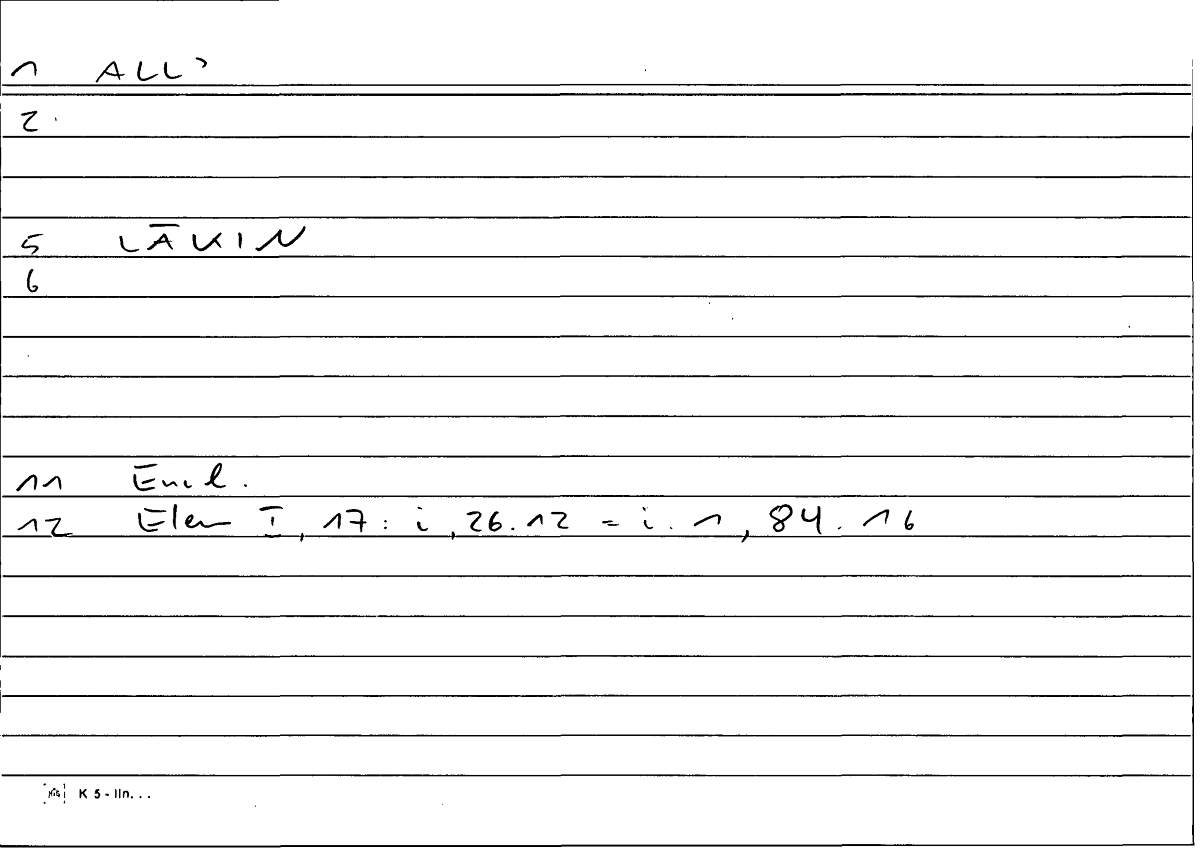 1 ALL>
2.
5 LĀKIN
6
11 Eucl.
12 Elem I, 17 : i, 26.12 = i. 1, 84. 16
K 5 - lin. . .